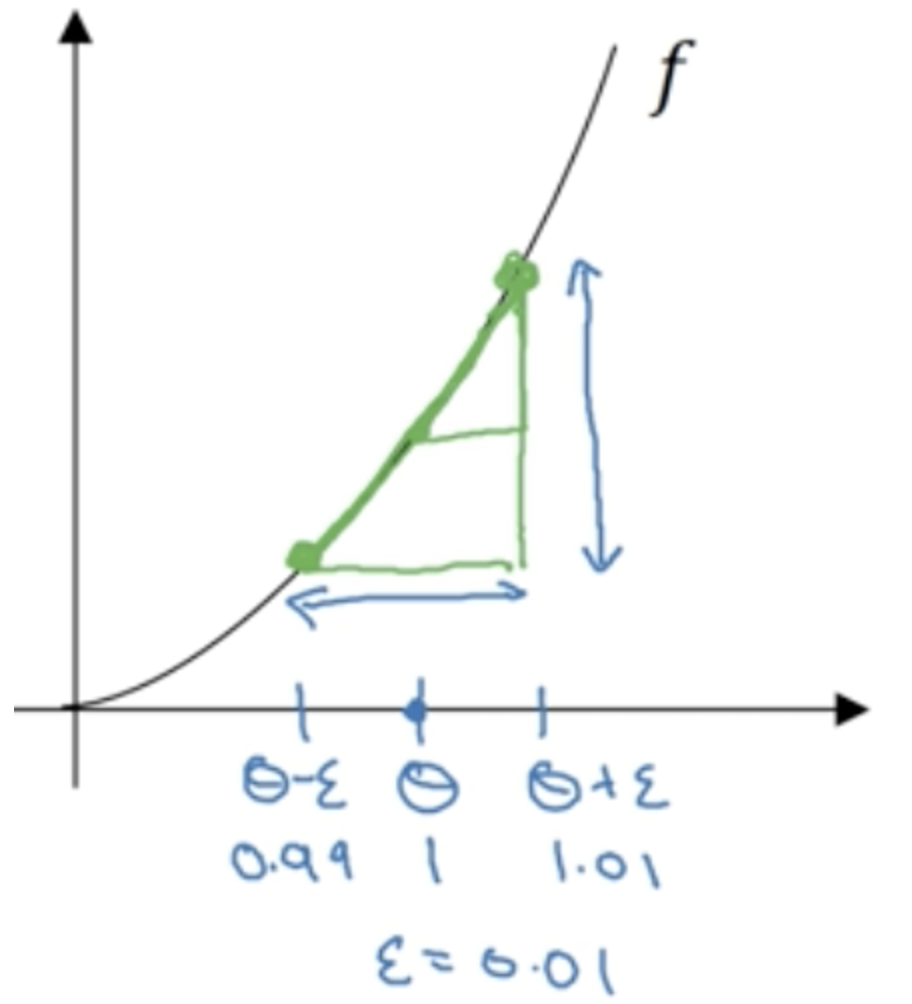 f
Θ-ε Θ Θ+ε
0.99 1 1.01
ε = 0.01